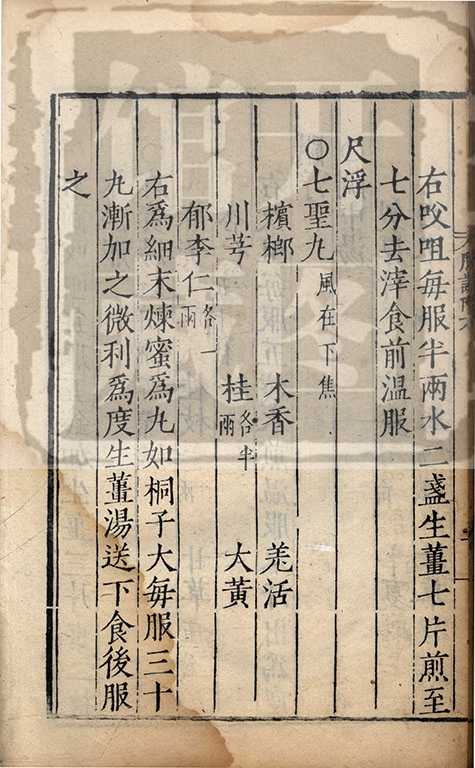 右㕮咀每服半兩水二盞生薑七片煎至
七分去滓食前温服
尺浮
〇七聖丸風在下焦
檳榔 木香 羌活
川芎 桂各半兩 大黄
郁李仁各一兩
右爲細末煉蜜爲丸如桐子大每服三十
丸漸加之微利爲度生薑湯送下食後服
之